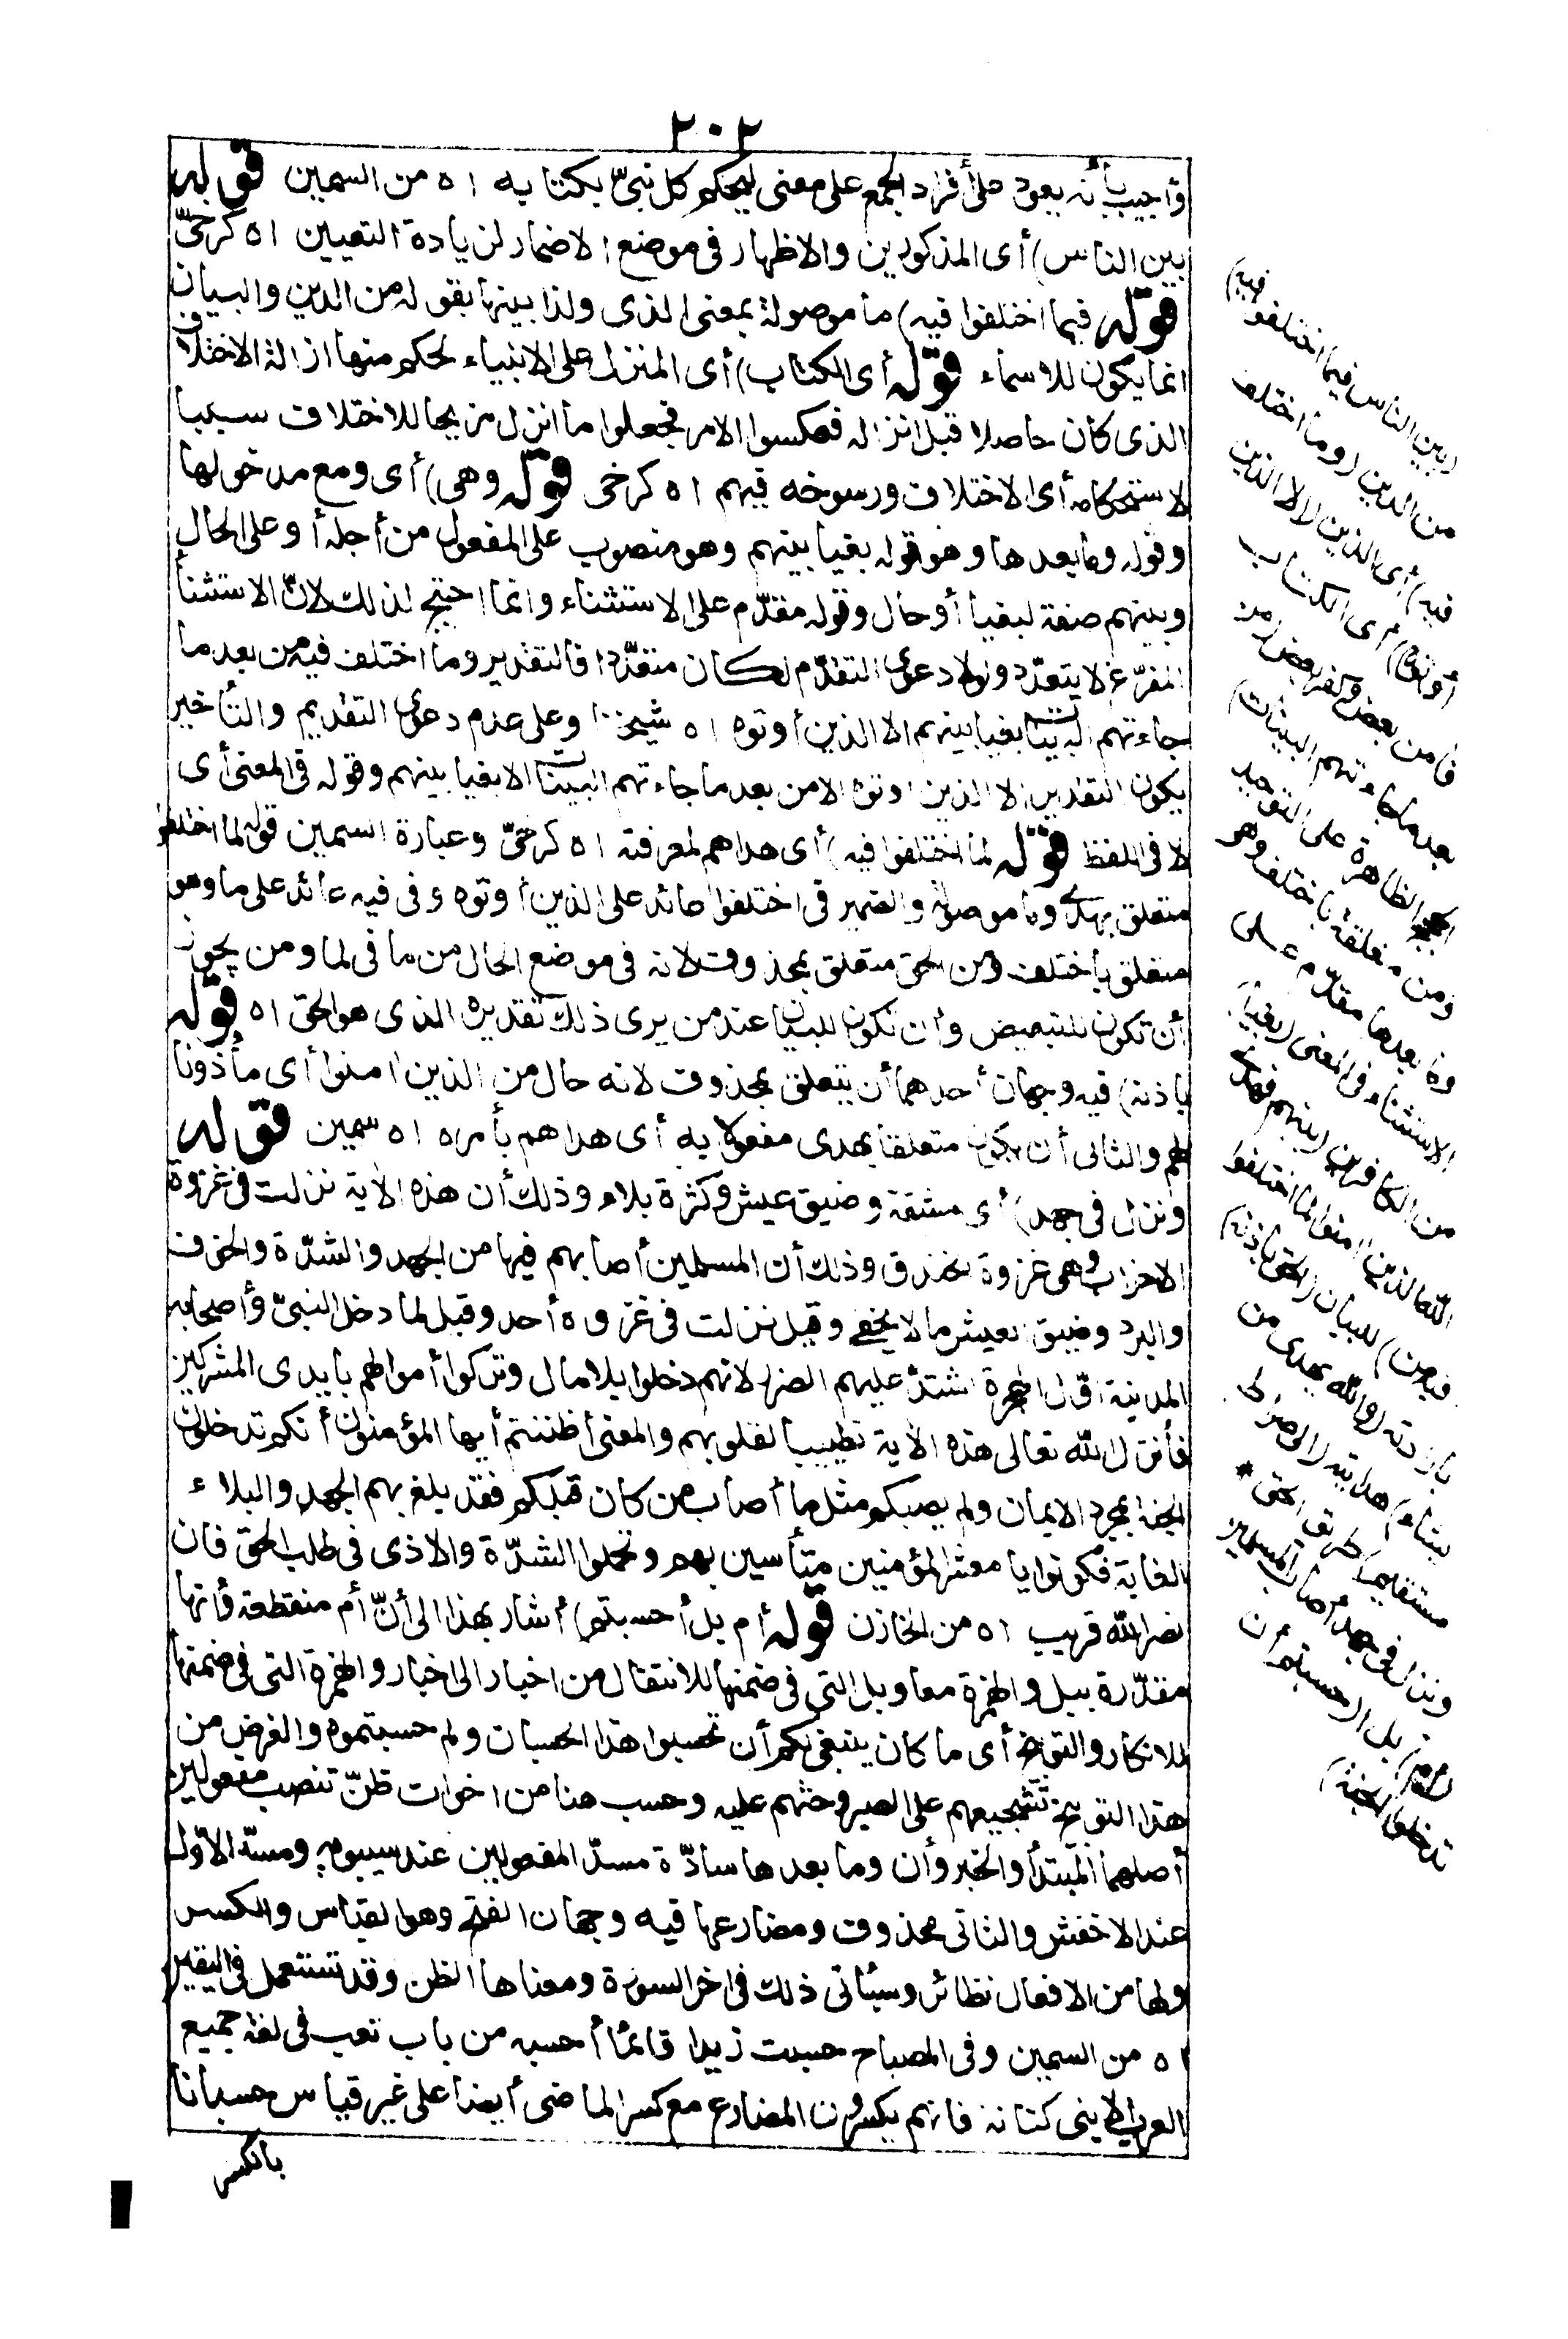 ٢٠٢
وأجيب بأنه يعود على أفراد الجمع على معنى ليحكم كل نبىّ بكتابه اه من السمين قوله
بين الناس) أى المذكورين والاظهار فى موضع الاضمار لزيادة التعيين اه كرخىّ
قوله فيما اختلفوا فيه) ما موصولة بمعنى الذى ولذا بينها بقوله من الدين والبيان
انما يكون للاسماء قوله أى الكتاب) أى المنزل على الانبياء لحكم منها ازالة الاختلاف
الذى كان حاصلا قبل انزاله فعكسوا الامر فجعلوا ما انزل مزيحا للاختلاف سببا
لاستحكامه أى الاختلاف ورسوخه فيهم اه كرخى قوله وهى) أى ومع مدخولها
وقوله وما بعدها وهو قوله بغيا بينهم وهو منصوب على المفعول من أجله أو على الحال
وبينهم صفة لبغيا أو حال وقوله مقدّم على الاستثناء وانما احتيج لذلك لانّ الاستثنأ
المفرّغ لا يتعدّد ولولا دعوى التقدّم لكان متعدّدا فالتقدير وما اختلف فيه من بعد ما
جاءتهم البينات بغيا بينهم الا الذين أوتوه اه شيخنا وعلى عدم دعوى التقديم والتأخير
يكون التقدير الا الذين اوتوه الا من بعد ما جاءتهم البينات الا بغيا بينهم وقوله فى المعنى أى
لا فى اللفظ قوله لما اختلفوا فيه) أى هداهم لمعرفته اه كرخىّ وعبارة السمين قوله لما اختلفوا
متعلق بهدى وما موصولة والضمير فى اختلفوا عائد على الذين أوتوه وفى فيه عائد على ما وهو
متعلق باختلف ومن الحق متعلق بمحذوف لانه فى موضع الحال من ما فى لما ومن يجوز
أن تكون للتبعيض وأن تكون للبيان عند من يرى ذلك تقديره الذى هو الحق اه قوله
باذنه) فيه وجهان أحدهما أن يتعلق بمحذوف لانه حال من الذين امنوا أى مأذونا
لهم والثانى أن يكون متعلقا بهدى مفعولا به أى هداهم بأمره اه سمين قوله
ونزل فى جهد) أى مشقة وضيق عيش وكثرة بلاء وذلك أن هذه الاية نزلت فى غزوة
الاحزاب وهى غزوة الخندق وذلك أن المسلمين أصابهم فيها من الجهد والشدّة والخوف
والبرد وضيق العيش ما لا يخفى وقيل نزلت فى غزوة أحد وقيل لما دخل النبىّ وأصحابه
المدينة اوّل الهجرة اشتدّ عليهم الضر لانهم دخلوا بلا مال وتركوا أموالهم بايدى المشركين
فأنزل الله تعالى هذه الاية تطييبا لقلوبهم والمعنى أظننتم أيها المؤمنون أنكم تدخلون
الجنة بمجرد الايمان ولم يصبكم مثل ما أصاب من كان قبلكم فقد بلغ بهم الجهد والبلاء
الغاية فكونوا يا معشر المؤمنين متأسين بهم وتحملوا الشدّة والاذى فى طلب الحق فان
نصر الله قريب اه من الخازن قوله أم بل أحسبتم) أشار بهذا الى أنّ أم منقطعة وأنها
مقدّرة ببل والهمزة معا وبل التى فى ضمنها للانتقال من اخبار الى اخبار والهمزة التى فى ضمنها
للانكار والتوبيخ أى ما كان ينبغى لكم أن تحسبوا هذا الحسبان ولم حسبتموه والغرض من
هذا التوبيخ تشجيعهم على الصبر وحثهم عليه وحسب هنا من اخوات ظنّ تنصب مفعولين
أصلهما المبتدأ والخبر وأن وما بعدها سادّة مسدّ المفعولين عند سيبويه ومسدّ الاوّل
عند الاخفش والثانى محذوف ومضارعها فيه وجهان الفتح وهو القياس والكسر
ولها من الافعال نظائر وسيأتى ذلك فى اخر السورة ومعناها الظن وقد تستعمل فى اليقين
اه من السمين وفى المصباح حسبت زيدا قائما أحسبه من باب تعب فى لغة جميع
العرب الا بنى كنانة فانهم يكسرون المضارع مع كسر الماضى أيضا على غير قياس حسبانا
بالكسر
(بين الناس فيما اختلفوا فيه)
من الدين (وما اختلف
فيه) أى الدين (الا الذين
أوتوه) أى الكتاب
فامن بعض وكفر بعض (من
بعد ما جاءتهم البينات)
الحجج الظاهرة على التوحيد
ومن متعلقة باختلف وهو
وما بعدها مقدّم على
الاستثناء فى المعنى (بغيا)
من الكافرين (بينهم فهدى
الله الذين امنوا لما اختلفوا
فيه من) للبيان (الحق باذنه)
بارادته (والله يهدى من
يشاء) هدايته (الى صراط
مستقيم) طريق الحق *
ونزل فى جهد أصاب المسلمين
(أم) بل (حسبتم أن
تدخلوا الجنة)